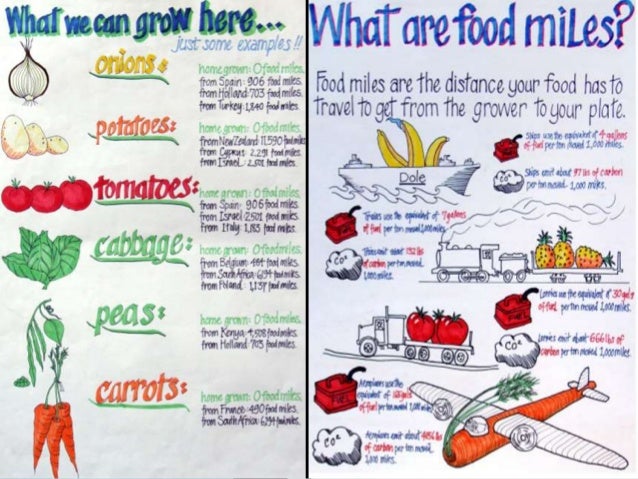 What we can grow here...
just some examples!!
onions:
home grown: 0 food miles.
from Spain: 906 food miles.
from Holland: 703 food miles.
from Turkey: 1,840 food miles.
potatoes:
home grown: 0 food miles.
from New Zealand: 11,590 food miles
from Cyprus: 2,291 food miles.
from Israel: 2,501 food miles.
tomatoes:
home grown: 0 food miles.
from Spain: 906 food miles.
from Israel: 2501 food miles.
from Italy: 1,185 food miles.
cabbage:
home grown: 0 food miles.
from Belgium: food miles.
from South Africa: 6294 food miles.
from Poland: 1,137 food miles.
peas:
home grown: 0 food miles.
from Kenya: food miles.
from Holland: 703 food miles.
carrots:
home grown: 0 food miles.
from France: 490 food miles.
from South Africa: 6294 food miles.
What are food miles?
Food miles are the distance your food has to
travel to get from the grower to your plate.
Dole
Ships use the equivalent of 4 gallons
of fuel per ton moved 1,000 miles.
CO²
Ships emit about 97 lbs of carbon
per ton moved 1,000 miles.
Trains use the equivalent of 7 gallons
of fuel per ton moved 1,000 miles.
CO²
Trains emit about 152 lbs
of carbon per ton moved
1,000 miles.
Lorries use the equivalent of 30 gals
of fuel per ton moved 1,000 miles.
CO²
Lorries emit about 666 lbs of
carbon per ton moved 1,000 miles.
FUEL
Aeroplanes use the
equivalent of
of fuel per ton moved 1,000 miles
CO²
Aeroplanes emit about
of carbon per ton moved
1,000 miles.